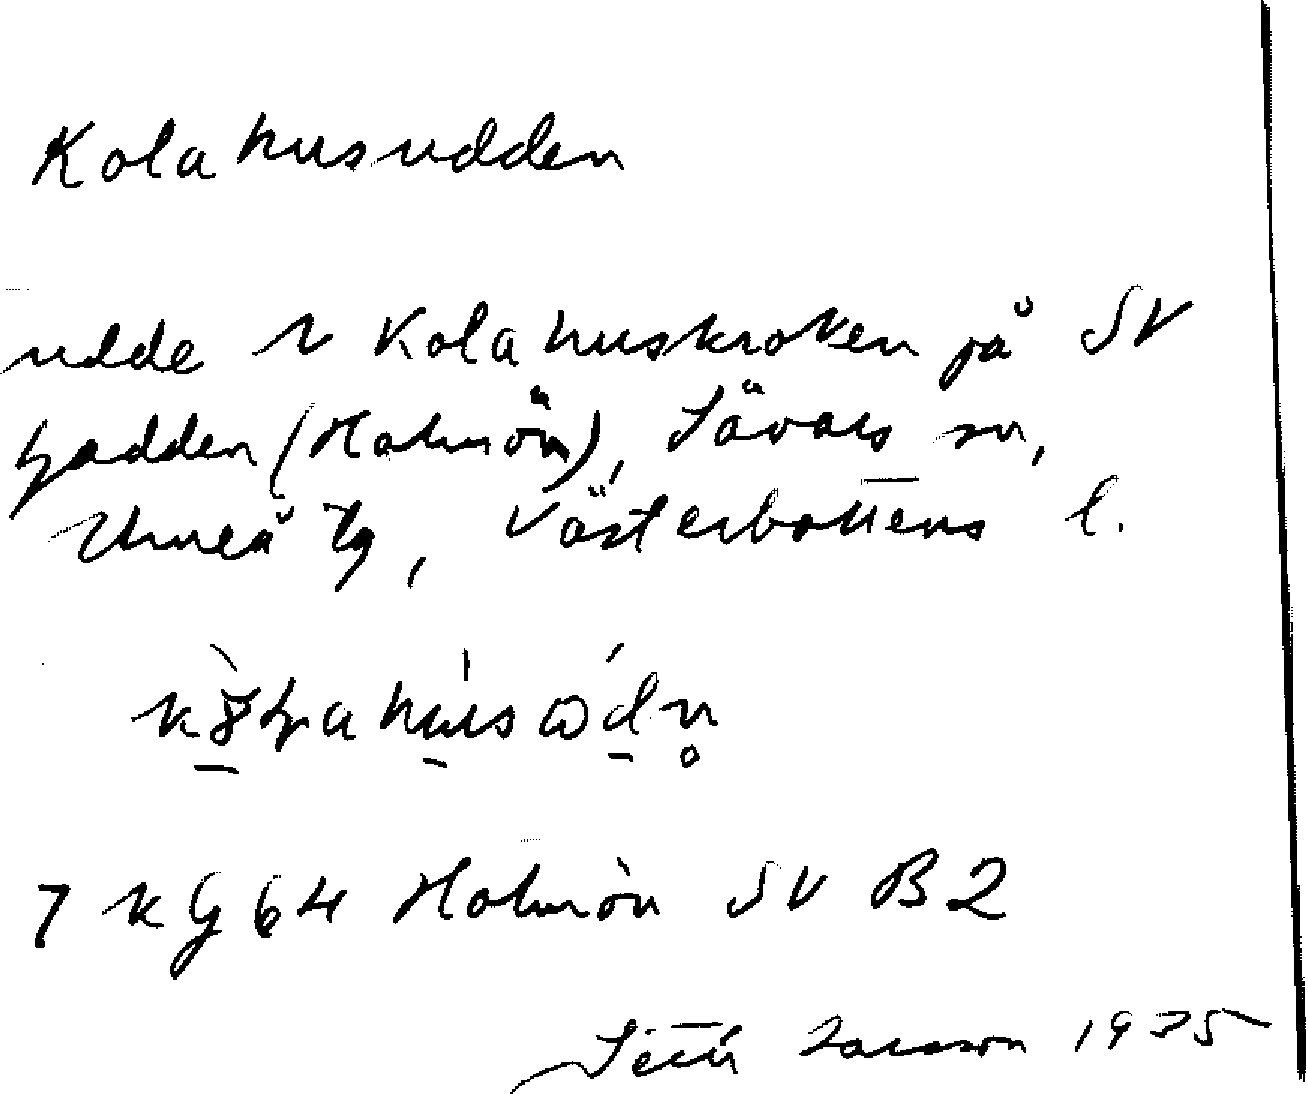 Kolahusudden
udde N Kolahuskroken på SV
Gadden (Holmön), Sävars sn,
Umeå tg, Västerbottens l.
7 KG 64 Holmön SV B2
Larsson 1975